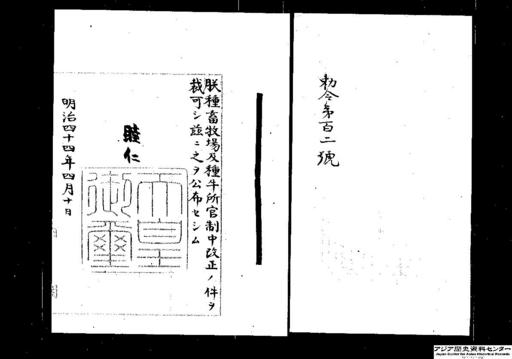 勅令第百二號
朕種畜牧場及種牛所官制中改正ノ件ヲ
裁可シ茲ニ之ヲ公布セシム
睦仁
天皇
御璽
明治四十四年四月十日
アジア歴史資料センター
Japan Center for Asian Historical Records